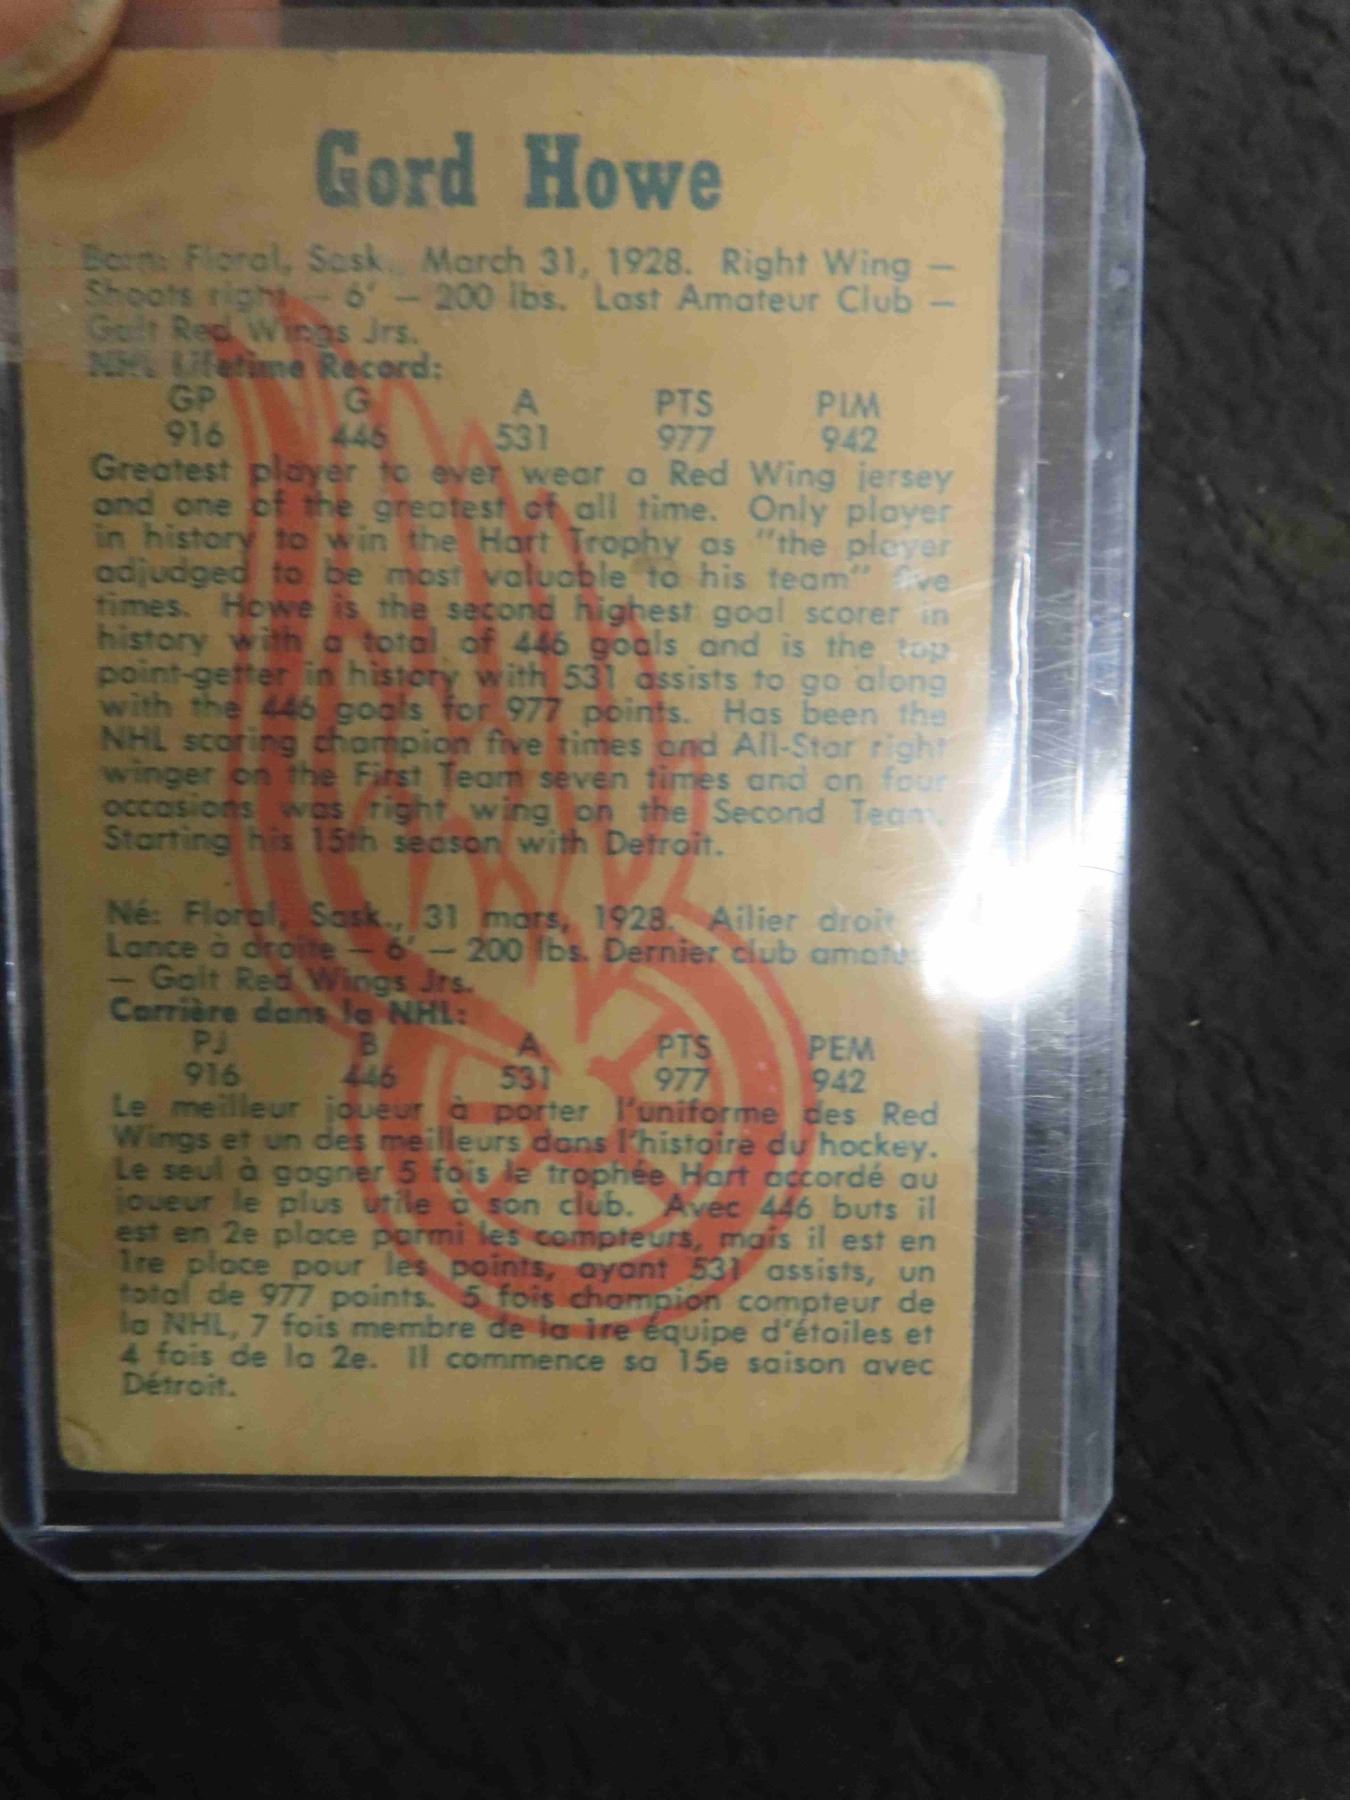 Gord Howe
Born: Floral, Sask., March 31, 1928. Right Wing —
Shoots right — 6' — 200 lbs. Last Amateur Club —
Galt Red Wings Jrs.
NHL Lifetime Record:
GP G A PTS PIM
916 446 531 977 942
Greatest player to ever wear a Red Wing jersey
and one of the greatest of all time. Only player
in history to win the Hart Trophy as "the player
adjudged to be most valuable to his team" five
times. Howe is the second highest goal scorer in
history with a total of 446 goals and is the top
point-getter in history with 531 assists to go along
with the 446 goals for 977 points. Has been the
NHL scoring champion five times and All-Star right
winger on the First Team seven times and on four
occasions was right wing on the Second Team.
Starting his 15th season with Detroit.
Né: Floral, Sask., 31 mars, 1928. Ailier droit
Lance à droite — 6' — 200 lbs. Dernier club
— Galt Red Wings Jrs.
Carrière dans la NHL:
PJ B A PTS PEM
916 446 531 977 942
Le meilleur joueur à porter l'uniforme des Red
Wings et un des meilleurs dans l'histoire du hockey.
Le seul à gagner 5 fois le trophée Hart accordé au
joueur le plus utile à son club. Avec 446 buts il
est en 2e place parmi les compteurs, mais il est en
1re place pour les points, ayant 531 assists, un
total de 977 points. 5 fois champion compteur de
la NHL, 7 fois membre de la 1re équipe d'étoiles et
4 fois de la 2e. Il commence sa 15e saison avec
Détroit.